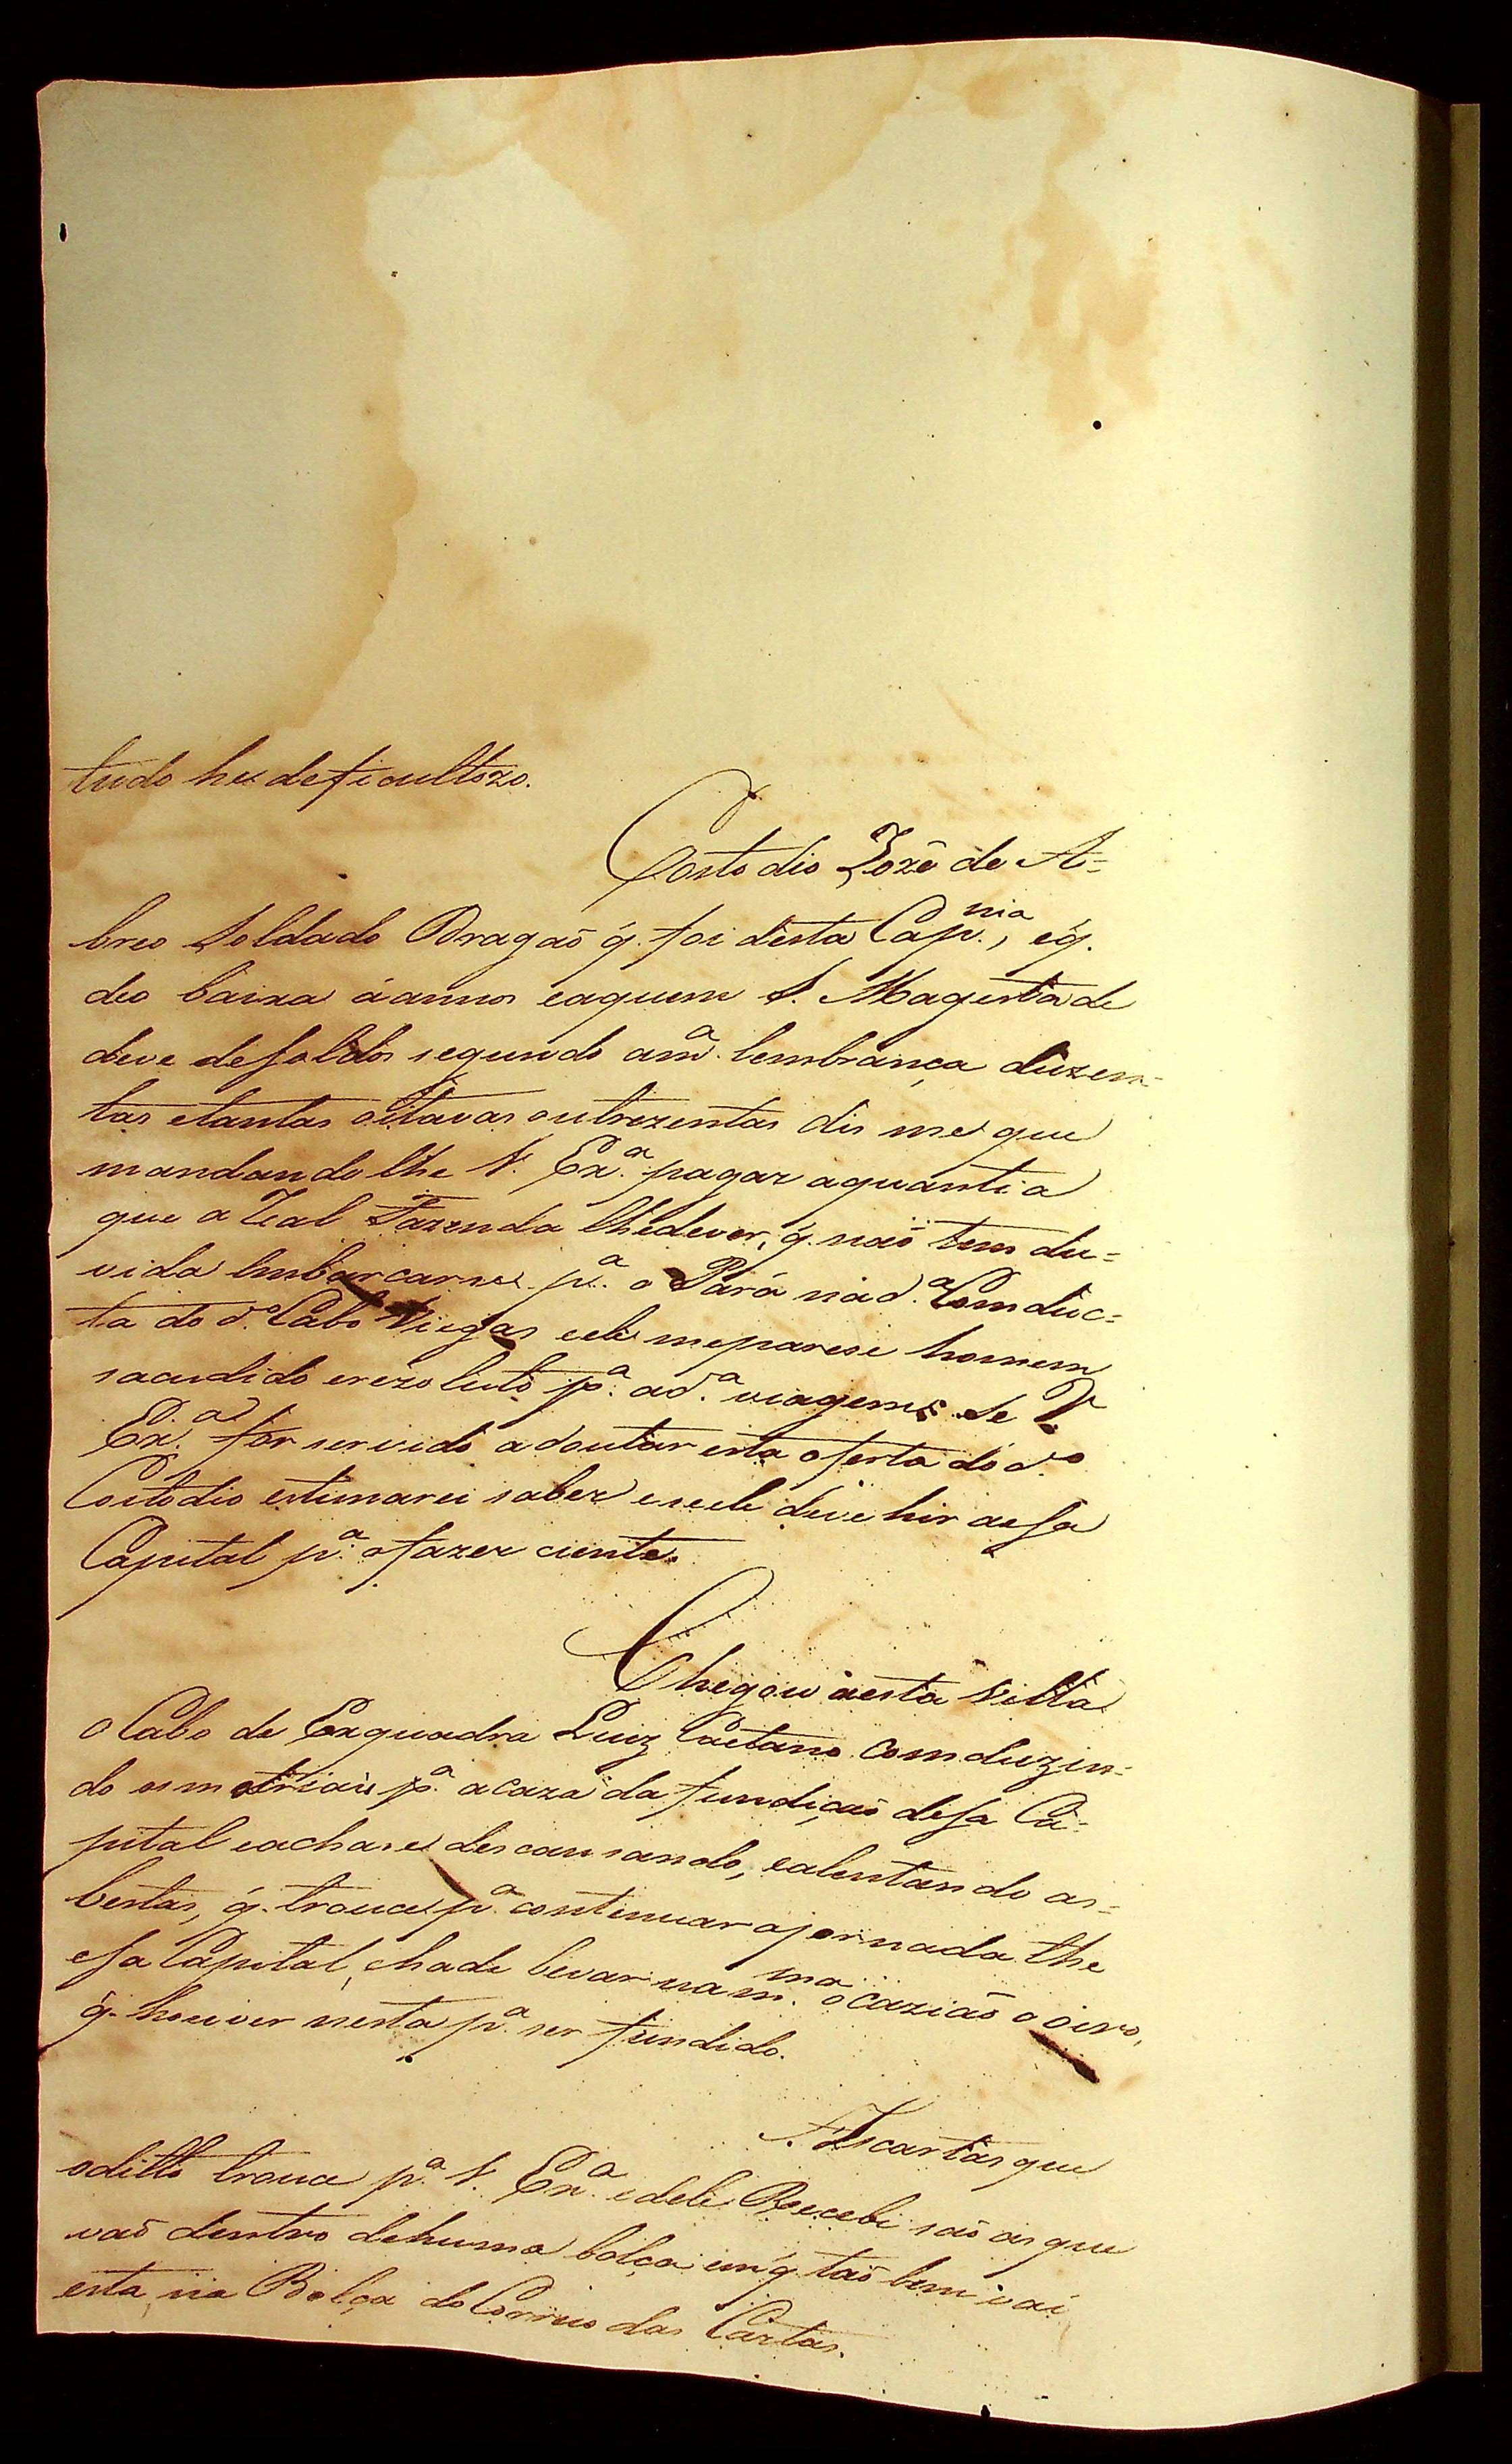 tudo he deficultozo.
Costodio Jozê de A=
breo Soldado Dragaõ q̃. foi desta Cap.nia, eq̃.
deo baixa áannos eaquem S. Magestade
deve desoldos segundo am.a lembrança duzen=
tas etantas oitavas outrezentas dis me que
mandandolhe V. Ex.a pagar aquantia
que a Real Fazenda lhedever, q̃. naõ tem du=
vida Embarcarse p.a o Pará nad.a Comduc=
ta do d.o Cabo Viegas eele meparese homem
sacudido erezoluto p.a ad.a viagem: Se V.
Ex.a for servido adoutar esta oferta dod.o
Costodio estimarei saber eseele deve hir aessa
Capital p.a ofazer ciente.
Chegou aesta Villa
o Cabo de Exquadra Luiz Caetano comduzin=
do osmatriais p.a acaza da fundiçaõ dessa Ca=
pital eachase descansando, ealentando as=
bestas, q̃. trouce p.a continuar ajornada the
essa Capital, ehade levar nam.ma ocaziaõ o oiro,
q̃. houver nesta p.a ser fundido.
As cartas que
oditto trouce p.a V. Ex.a edele Recebi saõ as que
vaõ dentro dehuma bolça emq̃. taõ bem vai
esta, na Bolça do Correio das Cartas.